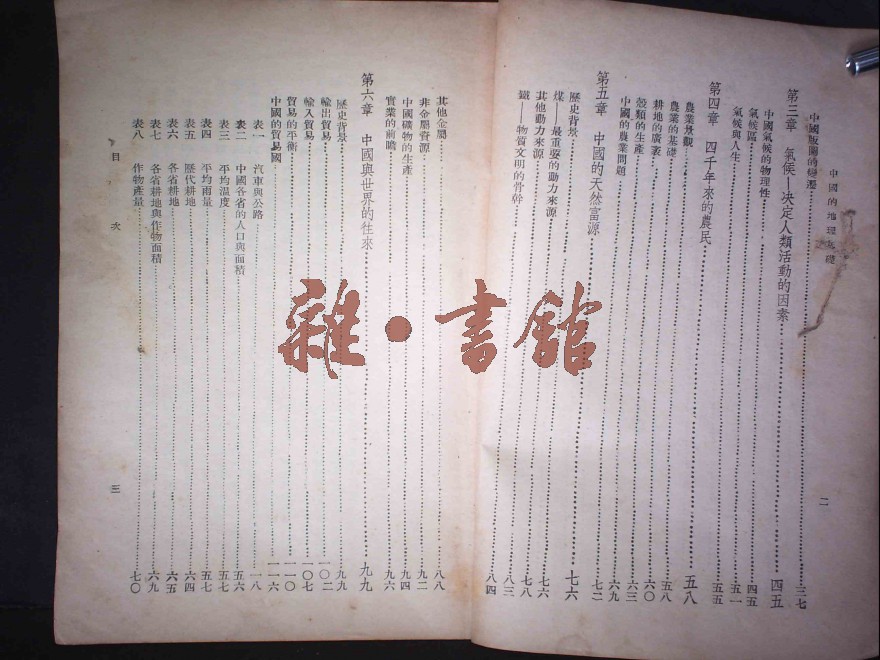 中國的地理基礎
二
中國版圖的變遷……三七
第三章 氣候—決定人類活動的因素……四五
中國氣候的物理性……四五
氣候區……五一
氣候與人生……五五
第四章 四千年來的農民……五八
農業景觀……五八
農業的基礎……六〇
耕地的廣袤……六三
穀類的生產……六九
中國的農業問題……七二
第五章 中國的天然富源……七六
歷史背景……七六
煤—最重要的動力來源……七八
其他動力來源……八三
鐵—物質文明的骨幹……八四
其他金屬……八八
非金屬資源……九二
中國礦物的生產……九四
實業的前瞻……九六
第六章 中國與世界的往來……九九
歷史背景……九九
輸出貿易……一〇二
輸入貿易……一〇七
貿易的平衡……一一〇
中國的貿易國……一一六
表一 汽車與公路……一八
表二 中國各省的人口與面積……五六
表三 平均溫度……五七
表四 平均雨量……五七
表五 歷代耕地……六四
表六 各省耕地……六五
表七 各省耕地與作物面積……六九
表八 作物產量……七〇
目次
三
雜·書館